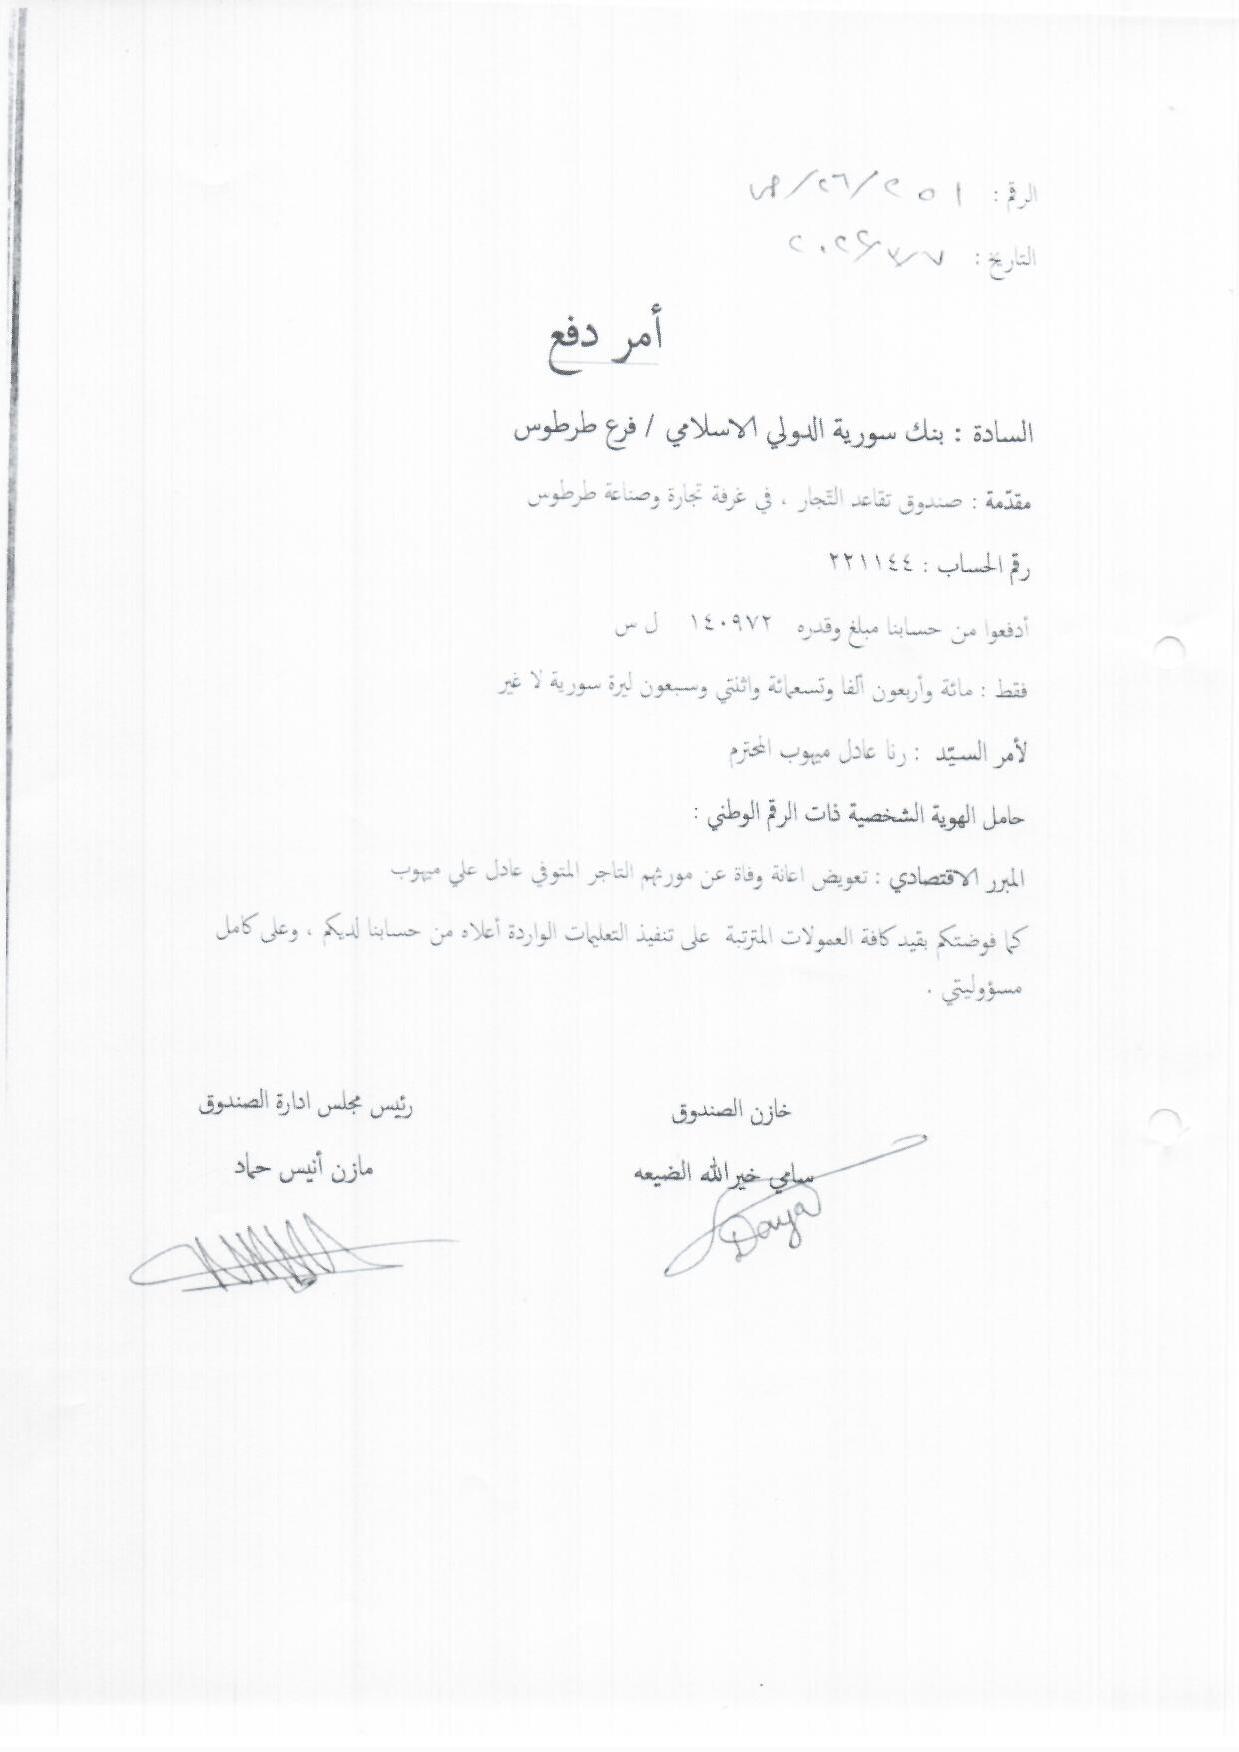 الرقم :
التاريخ :
أمر دفع
السادة : بنك سورية الدولي الاسلامي / فرع طرطوس
مقدّمة : صندوق تقاعد التّجار ، في غرفة تجارة وصناعة طرطوس
رقم الحساب : ٢٢١١٤٤
أدفعوا من حسابنا مبلغ وقدره ١٤٠٩٧٢ ل س
فقط : مائة وأربعون ألفا وتسعمائة واثنتي وسبعون ليرة سورية لا غير
لأمر السيّد : رنا عادل ميهوب المحترم
حامل الهوية الشخصية ذات الرقم الوطني :
المبرر الاقتصادي : تعويض اعانة وفاة عن مورثهم التاجر المتوفي عادل علي ميهوب
كما فوضتكم بقيد كافة العمولات المترتبة على تنفيذ التعليمات الواردة أعلاه من حسابنا لديكم ، وعلى كامل
مسؤوليتي .
خازن الصندوق
رئيس مجلس ادارة الصندوق
سامي خيرالله الضيعه
مازن أنيس حماد
Daya